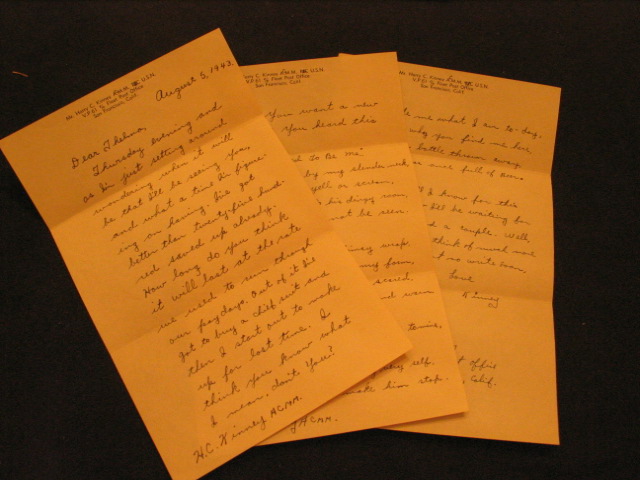 Mr. Harry C. Kinney A.M.M. U.S.N.
V.P. 61 % Fleet Post Office
San Francisco, Calif.
August 5, 1943.
Dear Thelma,
Thursday evening and
as I'm just setting around
wondering when it will
be that I'll be seeing you,
and what a time I'm figur-
ing on having. I've got
better than twenty-five hund-
red saved up already.
How long do you think
it will last at the rate
we used to run through
our paydays. Out of it I've
got to buy a chief suit and
then I start out to make
up for lost time. I
think you know what
I mean, don't you?
H.C. Kinney ACMM.
Mr. Harry C. Kinney A.M.M. U.S.N.
V.P. 61 % Fleet Post Office
San Francisco, Calif.
You want a new
You heard this
To Be Me"
by my slender neck
yell or scream,
his dingy room,
not be seen.
my form,
scared,
and warm
self.
make him stop.
ACMM.
Mr. Harry C. Kinney A.M.M. U.S.N.
V.P. 61 % Fleet Post Office
San Francisco, Calif.
me what I am to-day.
why you find me here
bottle thrown away
once full of
I know for this
I'll be waiting for
a couple. Well,
think of much more
so write soon,
Love
Kinney
Office
Calif.